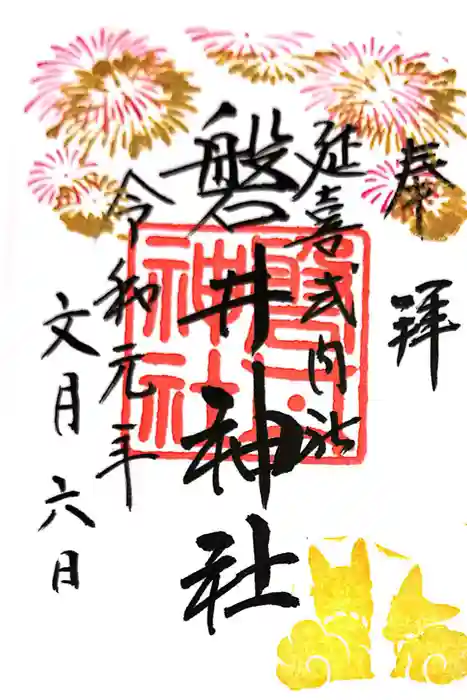 奉拝
延喜式内社
磐井神社
令和元年
文月六日
磐井神社